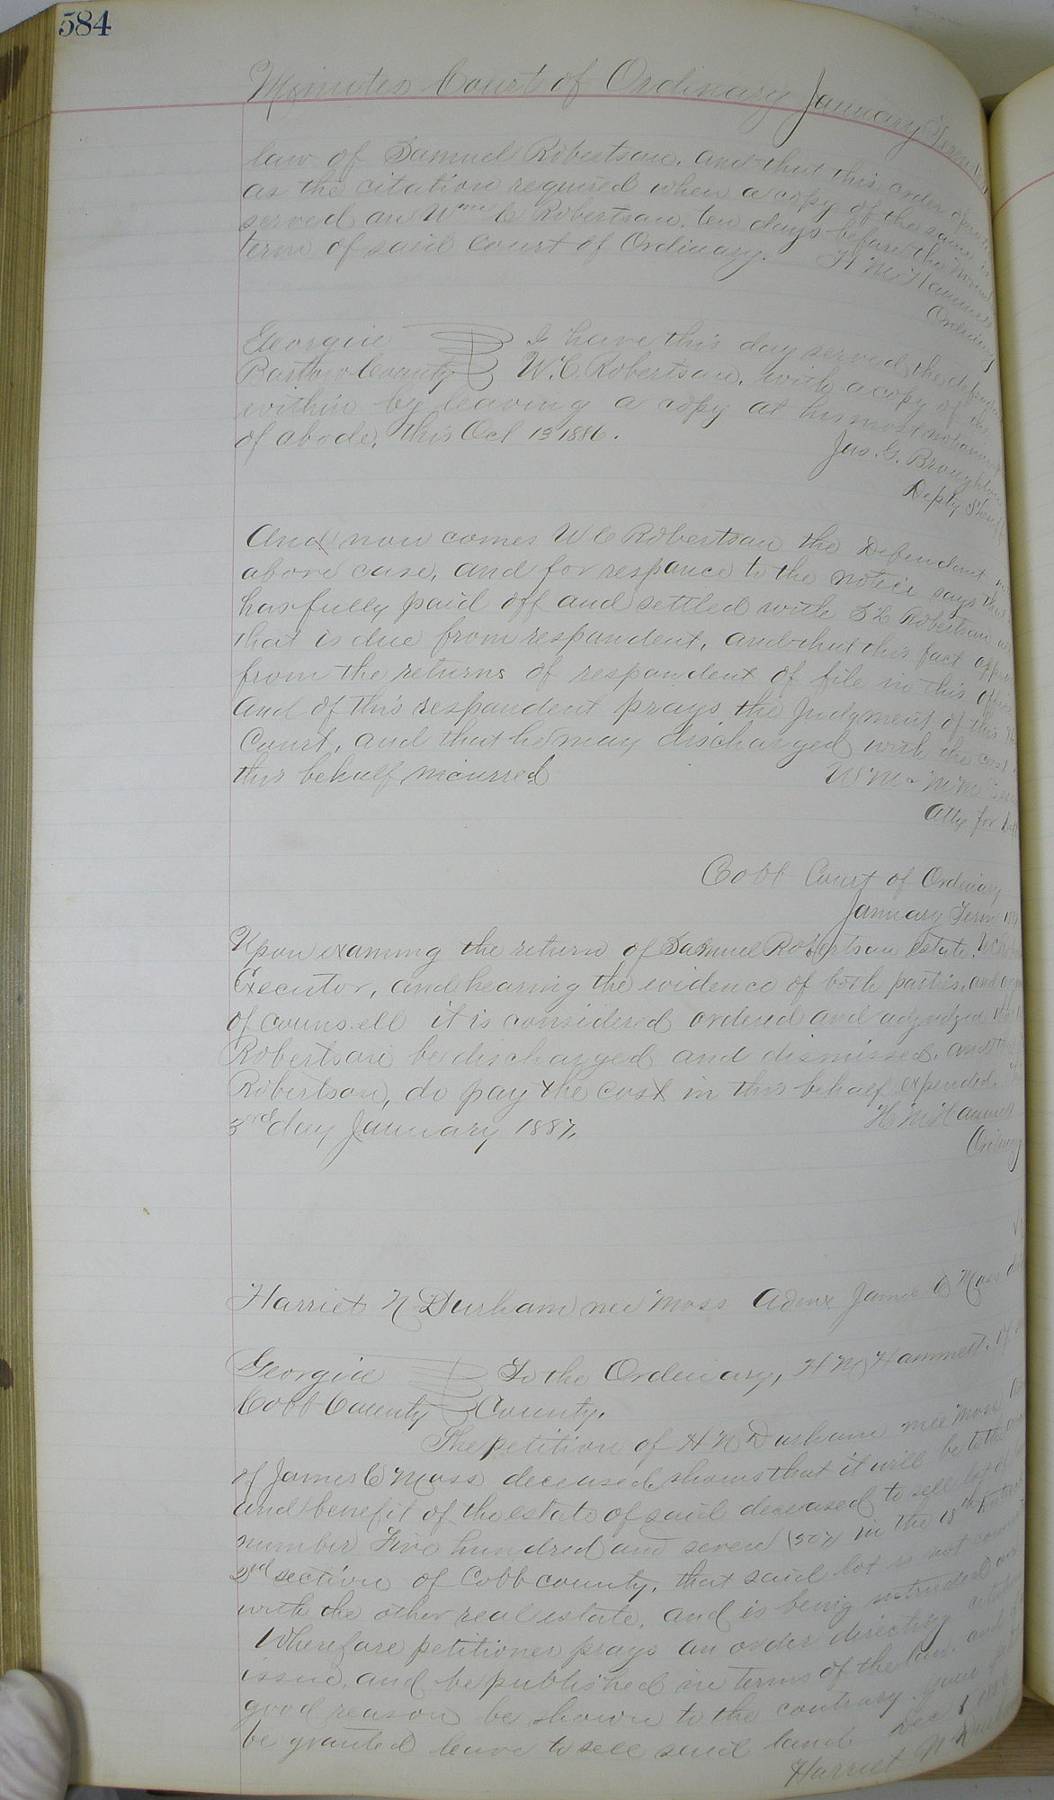 584
Minutes Court of Ordinary January Term
law of Samuel Robertson. and that this order operate
as the citation required when a copy of the same is
served on Wm C Robertson. ten days before the
term of said Court of Ordinary. H M Hammett
Ordinary
Georgia I have this day served the
Bartow County W. C. Robertson. with a copy of the
within by leaving a copy at his most notorious
of abode, this Oct 13 1886.
Jas. G. Broughton
Depty Sheriff
And now comes W C Robertson the Defendant
above case, and for responce to the notice says that
has fully paid off and settled with Robertson
that is due from respondent, and that this fact
from the returns of respondent of file in this office
and of this respondent prays the Judgment of this
Court, and that he may discharged with the cost
this behalf incurred
W M & M M
Atty for
Cobb Court of Ordinary
January Term
Upon examing the return of Samuel Robertson estate.
Executor, and hearing the evidence of both parties, and
of counsell it is considered ordered and adjudged
Robertson be discharged and dismissed. and
Robertson, do pay the cost in this behalf expended.
3rd day January 1887, H M Hammett
Ordinary
Harriet N Durham nee Moss Admx James C Moss
Georgia To the Ordinary, H M Hammett. of
Cobb County County.
The petition of H N Durham nee Moss
of James C Moss deceased, shows that it will be to the
and benefit of the estate of said deceased to sell lot of
number Five hundred and seven (507) in the 18th
2nd section of Cobb county, that said lot is not
with the other real estate. and is being intruded
Wherefore petitioner prays an order directing
issue, and be published in terms of the law. and
good reason be shown to the contrary.
be granted leave to sell said land Dec
Harriet N